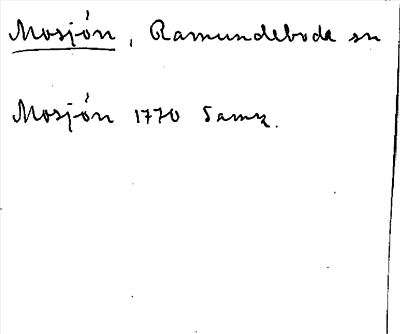 Mosjön, Ramundeboda sn
Mosjön 1770 Samz.